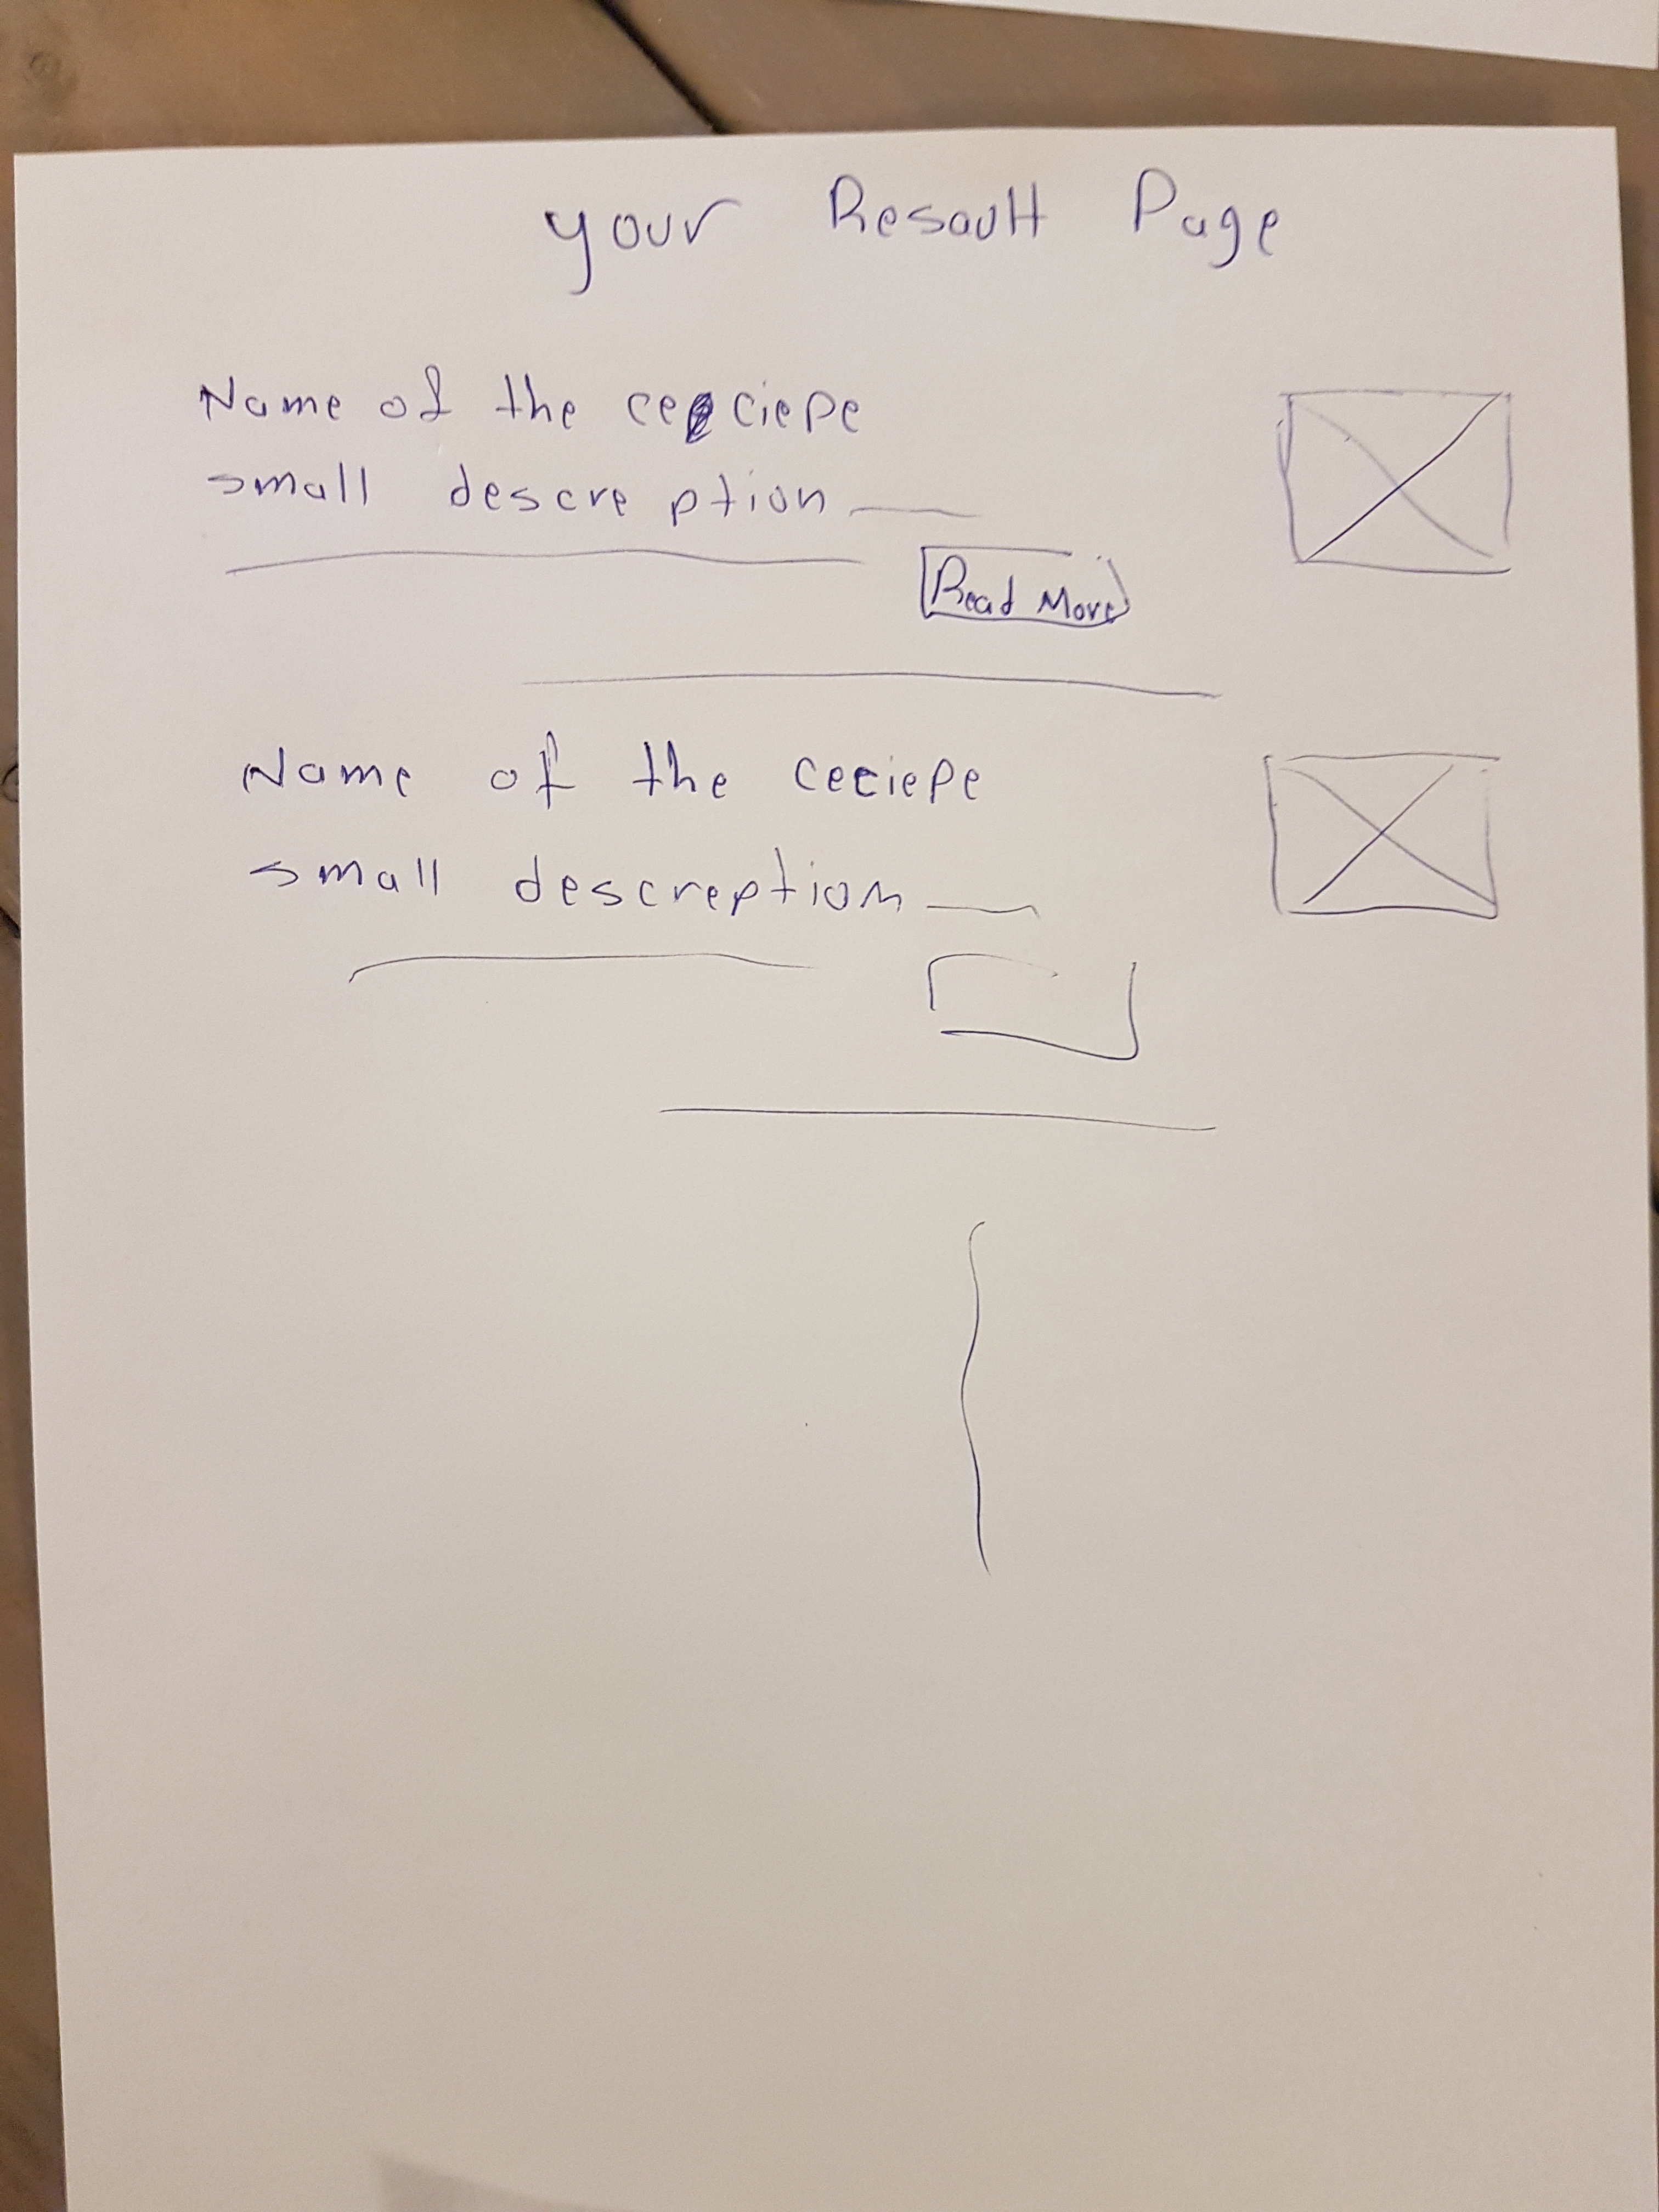 your Resault Page
Name of the ceciepe
small descreption
Read More
Name of the ceciepe
small descreption